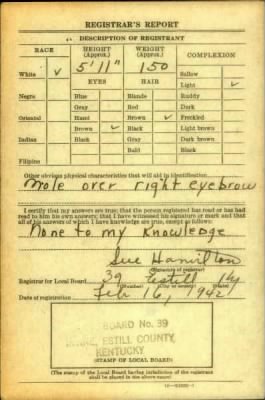 REGISTRAR'S REPORT
DESCRIPTION OF REGISTRANT
RACE
HEIGHT (Approx.)
WEIGHT (Approx.)
COMPLEXION
5'11" 150
White ✓
Sallow
EYES HAIR
Light ✓
Negro Blue Blonde Ruddy
Gray Red Dark
Oriental Hazel Brown ✓ Freckled
Brown ✓ Black Light brown
Indian Black Gray Dark brown
Bald Black
Filipino
Other obvious physical characteristics that will aid in identification
Mole over right eyebrow
I certify that my answers are true; that the person registered has read or has had
read to him his own answers; that I have witnessed his signature or mark and that
all of his answers of which I have knowledge are true, except as follows:
None to my Knowledge
Sue Hamilton
(Signature of registrar)
Registrar for Local Board 39 Estill Ky
(Number) (City or county) (State)
Date of registration Feb 16, 1942
BOARD No. 39
ESTILL COUNTY,
KENTUCKY
(STAMP OF LOCAL BOARD)
(The stamp of the Local Board having jurisdiction of the registrant
shall be placed in the above space.)